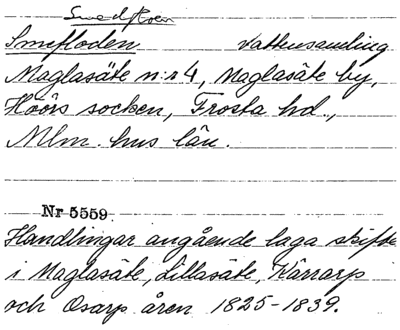 Smedfloen
Smefloden vattensamling
Maglasäte n:r 4, Maglasäte by,
Höörs socken, Frosta hd.,
Mlm. hus län.
Nr 5559.
Handlingar angående laga skifte
i Maglasäte, Lillasäte, Kärrarp
och Osarp åren 1825-1839.